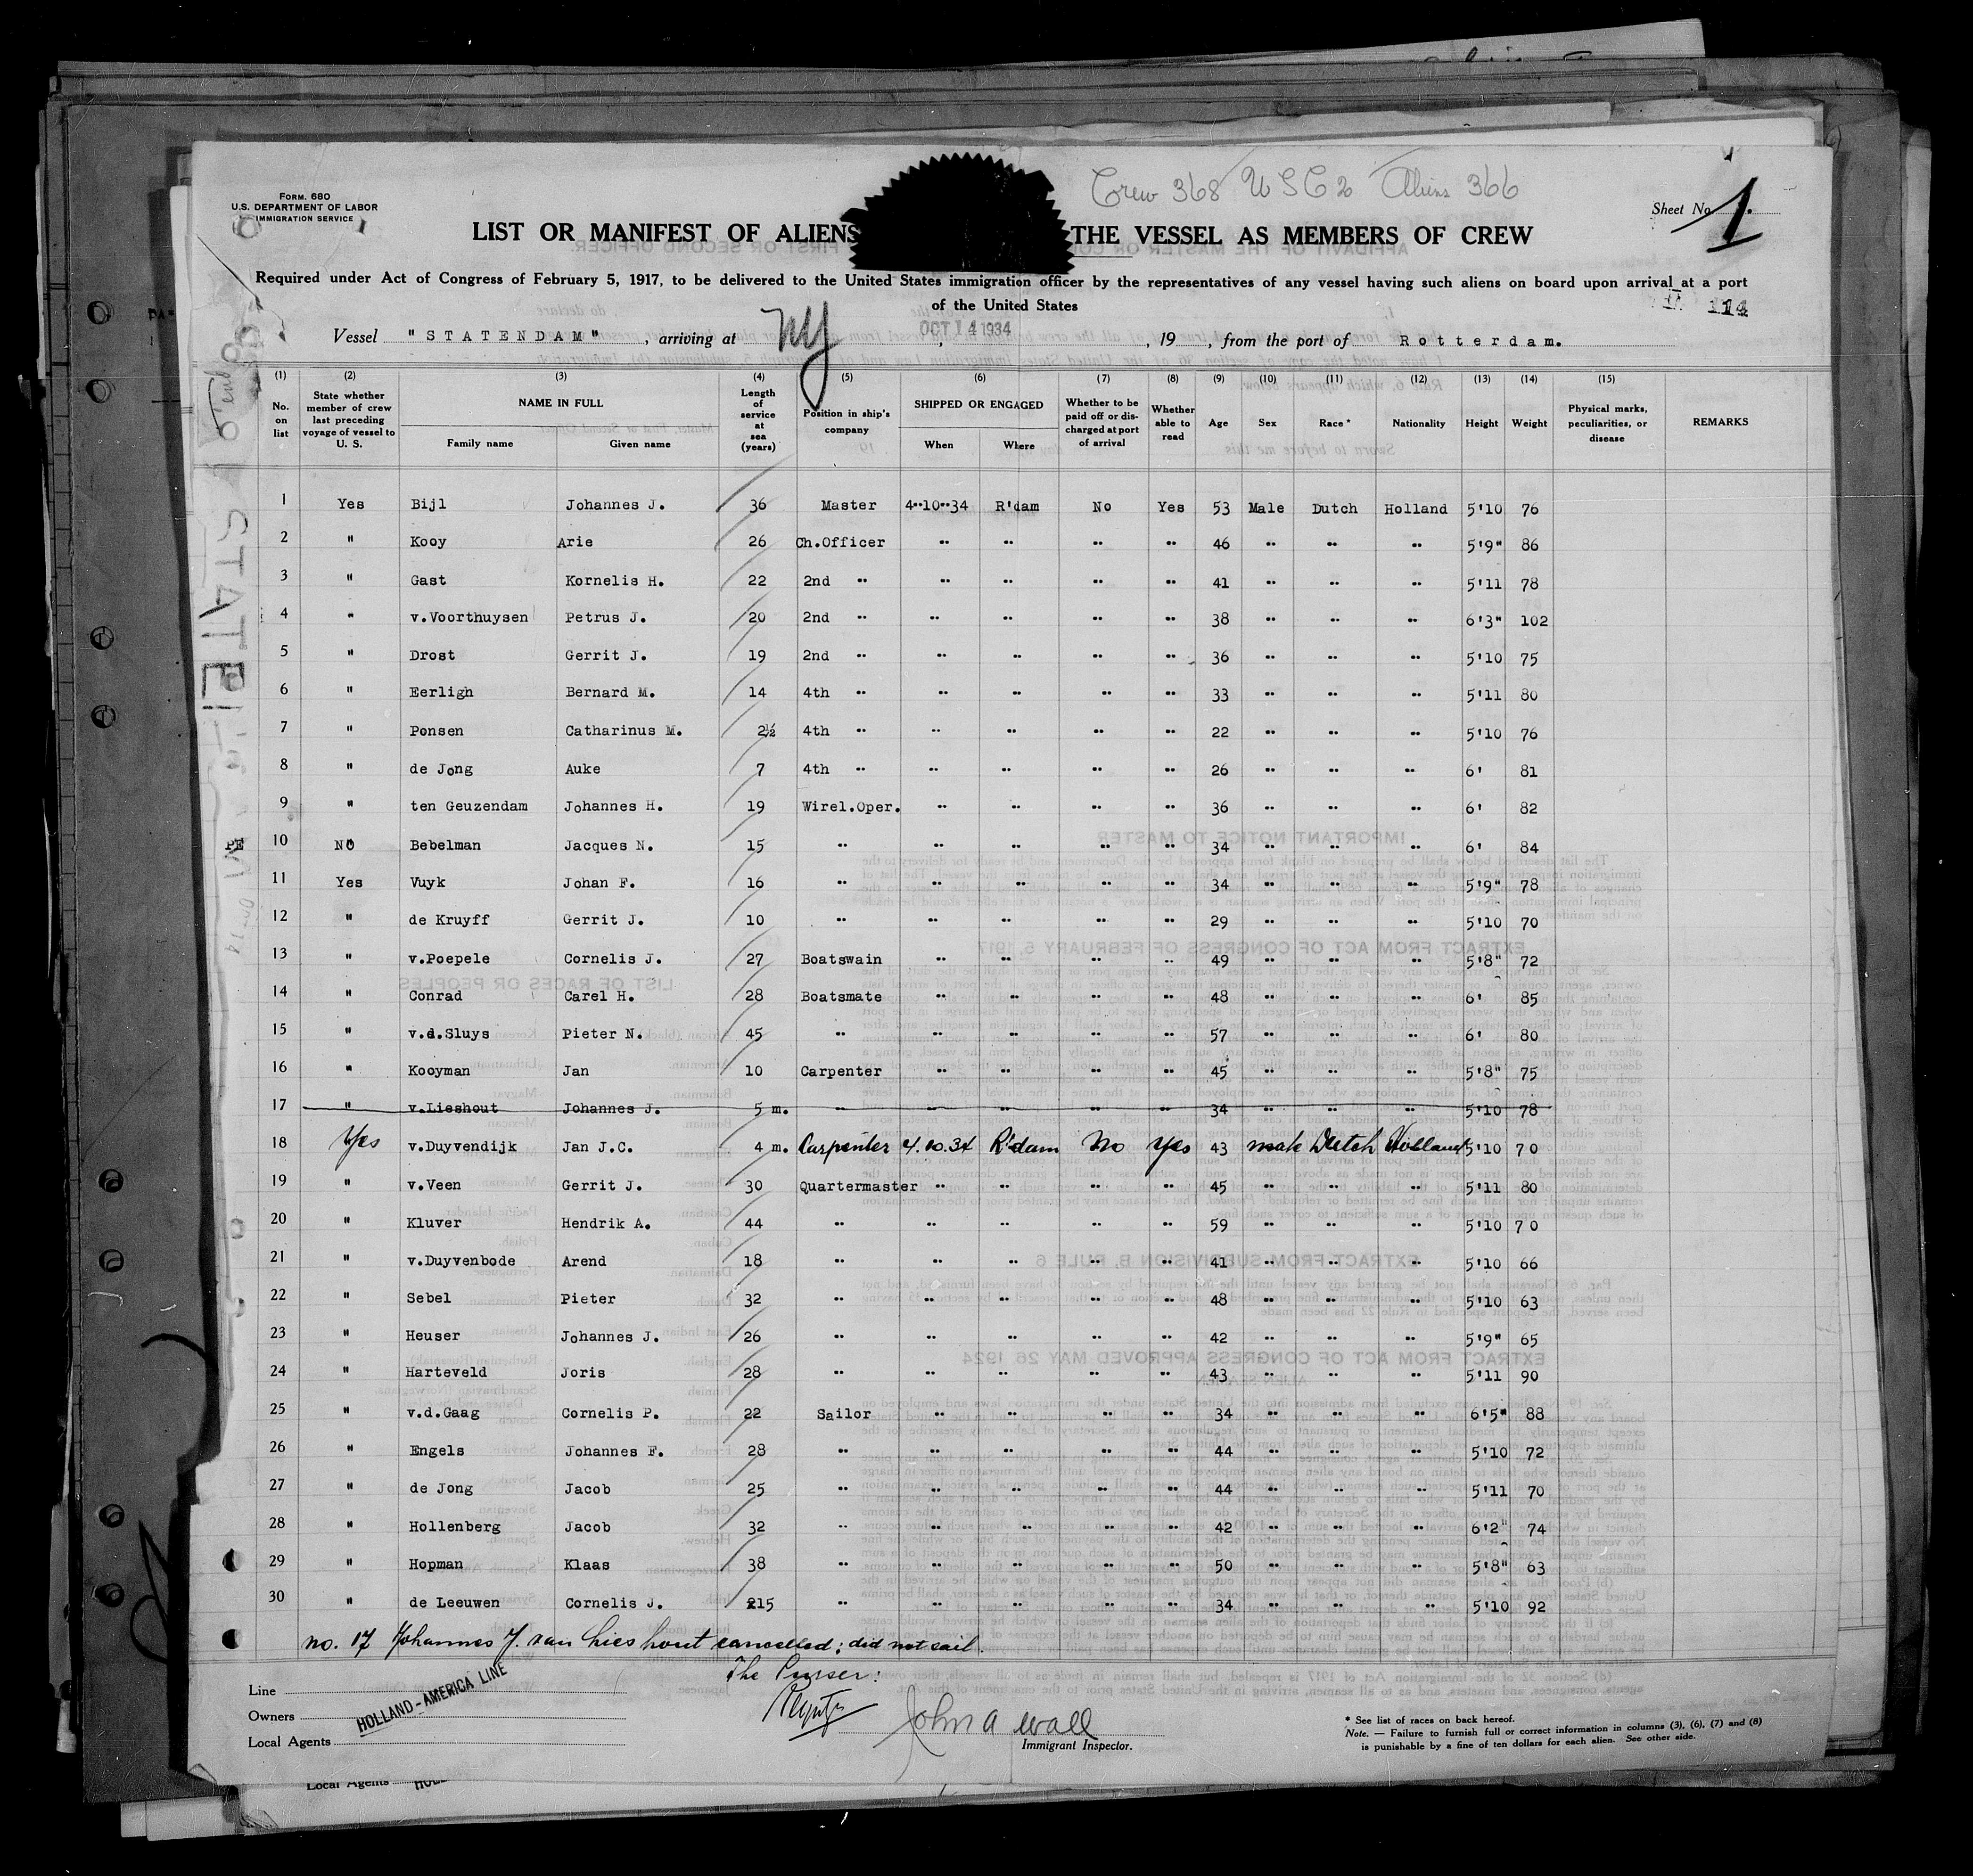 Crew 368 USC 2 Aliens 366
Form. 680
U.S. DEPARTMENT OF LABOR
IMMIGRATION SERVICE
Sheet No. 1
LIST OR MANIFEST OF ALIENS THE VESSEL AS MEMBERS OF CREW
Required under Act of Congress of February 5, 1917, to be delivered to the United States immigration officer by the representatives of any vessel having such aliens on board upon arrival at a port
of the United States
114
Vessel "STATENDAM", arriving at NY, OCT 14 1934, 19 , from the port of Rotterdam.
(1) (2) (3) (4) (5) (6) (7) (8) (9) (10) (11) (12) (13) (14) (15)
No. on list State whether member of crew last preceding voyage of vessel to U. S. NAME IN FULL Family name Given name Length of service at sea (years) Position in ship's company SHIPPED OR ENGAGED When Where Whether to be paid off or discharged at port of arrival Whether able to read Age Sex Race * Nationality Height Weight Physical marks, peculiarities, or disease REMARKS
1 Yes Bijl Johannes J. 36 Master 4-10-34 R'dam No Yes 53 Male Dutch Holland 5'10 76
2 " Kooy Arie 26 Ch.Officer " " " " 46 " " " 5'9" 86
3 " Gast Kornelis H. 22 2nd " " " " " 41 " " " 5'11 78
4 " v.Voorthuysen Petrus J. 20 2nd " " " " " 38 " " " 6'3" 102
5 " Drost Gerrit J. 19 2nd " " " " " 36 " " " 5'10 75
6 " Eerligh Bernard M. 14 4th " " " " " 33 " " " 5'11 80
7 " Ponsen Catharinus M. 2½ 4th " " " " " 22 " " " 5'10 76
8 " de Jong Auke 7 4th " " " " " 26 " " " 6' 81
9 " ten Geuzendam Johannes H. 19 Wirel.Oper. " " " " 36 " " " 6' 82
PE 10 No Bebelman Jacques N. 15 " " " " " 34 " " " 6' 84
11 Yes Vuyk Johan F. 16 " " " " " 34 " " " 5'9" 78
12 " de Kruyff Gerrit J. 10 " " " " " 29 " " " 5'10 70
13 " v.Poepele Cornelis J. 27 Boatswain " " " " 49 " " " 5'8" 72
14 " Conrad Carel H. 28 Boatsmate " " " " 48 " " " 6' 85
15 " v.d.Sluys Pieter N. 45 " " " " " 57 " " " 6' 80
16 " Kooyman Jan 10 Carpenter " " " " 45 " " " 5'8" 75
17 " v.Lieshout Johannes J. 5 m. " " " " " 34 " " " 5'10 78
18 Yes v.Duyvendijk Jan J.C. 4 m. Carpenter 4.10.34 R'dam No Yes 43 male Dutch Holland 5'10 70
19 " v.Veen Gerrit J. 30 Quartermaster " " " " 45 " " " 5'11 80
20 " Kluver Hendrik A. 44 " " " " " 59 " " " 5'10 70
21 " v.Duyvenbode Arend 18 " " " " " 41 " " " 5'10 66
22 " Sebel Pieter 32 " " " " " 48 " " " 5'10 63
23 " Heuser Johannes J. 26 " " " " " 42 " " " 5'9" 65
24 " Harteveld Joris 28 " " " " " 43 " " " 5'11 90
25 " v.d.Gaag Cornelis P. 22 Sailor " " " " 34 " " " 6'5" 88
26 " Engels Johannes F. 28 " " " " " 44 " " " 5'10 72
27 " de Jong Jacob 25 " " " " " 44 " " " 5'11 70
28 " Hollenberg Jacob 32 " " " " " 42 " " " 6'2" 74
29 " Hopman Klaas 38 " " " " " 50 " " " 5'8" 63
30 " de Leeuwen Cornelis J. 15 " " " " " 34 " " " 5'10 92
no. 17 Johannes J. van Lieshout cancelled; did not sail.
The Purser:
Line
Owners HOLLAND-AMERICA LINE
Local Agents
John A Wall
Immigrant Inspector.
* See list of races on back hereof.
Note. — Failure to furnish full or correct information in columns (3), (6), (7) and (8)
is punishable by a fine of ten dollars for each alien. See other side.
Local Agents